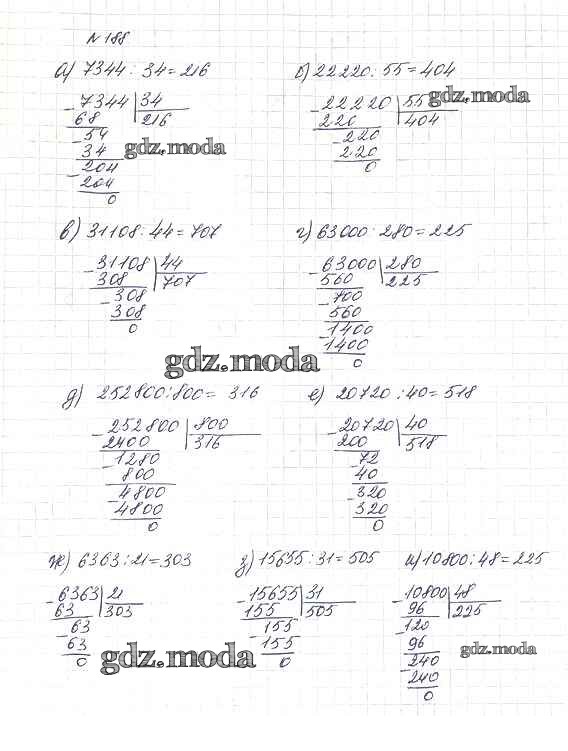 № 188
а) 7344 : 34 = 216
- 7344 | 34
68 216
- 54
34
- 204
204
0
б) 22220 : 55 = 404
- 22220 | 55
220 404
- 220
220
0
gdz.moda
gdz.moda
в) 31108 : 44 = 707
- 31108 | 44
308 707
- 308
308
0
г) 63000 : 280 = 225
- 63000 | 280
560 225
- 700
560
- 1400
1400
0
gdz.moda
д) 252800 : 800 = 316
- 252800 | 800
2400 316
- 1280
800
- 4800
4800
0
е) 20720 : 40 = 518
- 20720 | 40
200 518
- 72
40
- 320
320
0
ж) 6363 : 21 = 303
- 6363 | 21
63 303
- 63
63
0
з) 15655 : 31 = 505
- 15655 | 31
155 505
155
- 155
0
и) 10800 : 48 = 225
- 10800 | 48
96 225
- 120
96
- 240
240
0
gdz.moda
gdz.moda